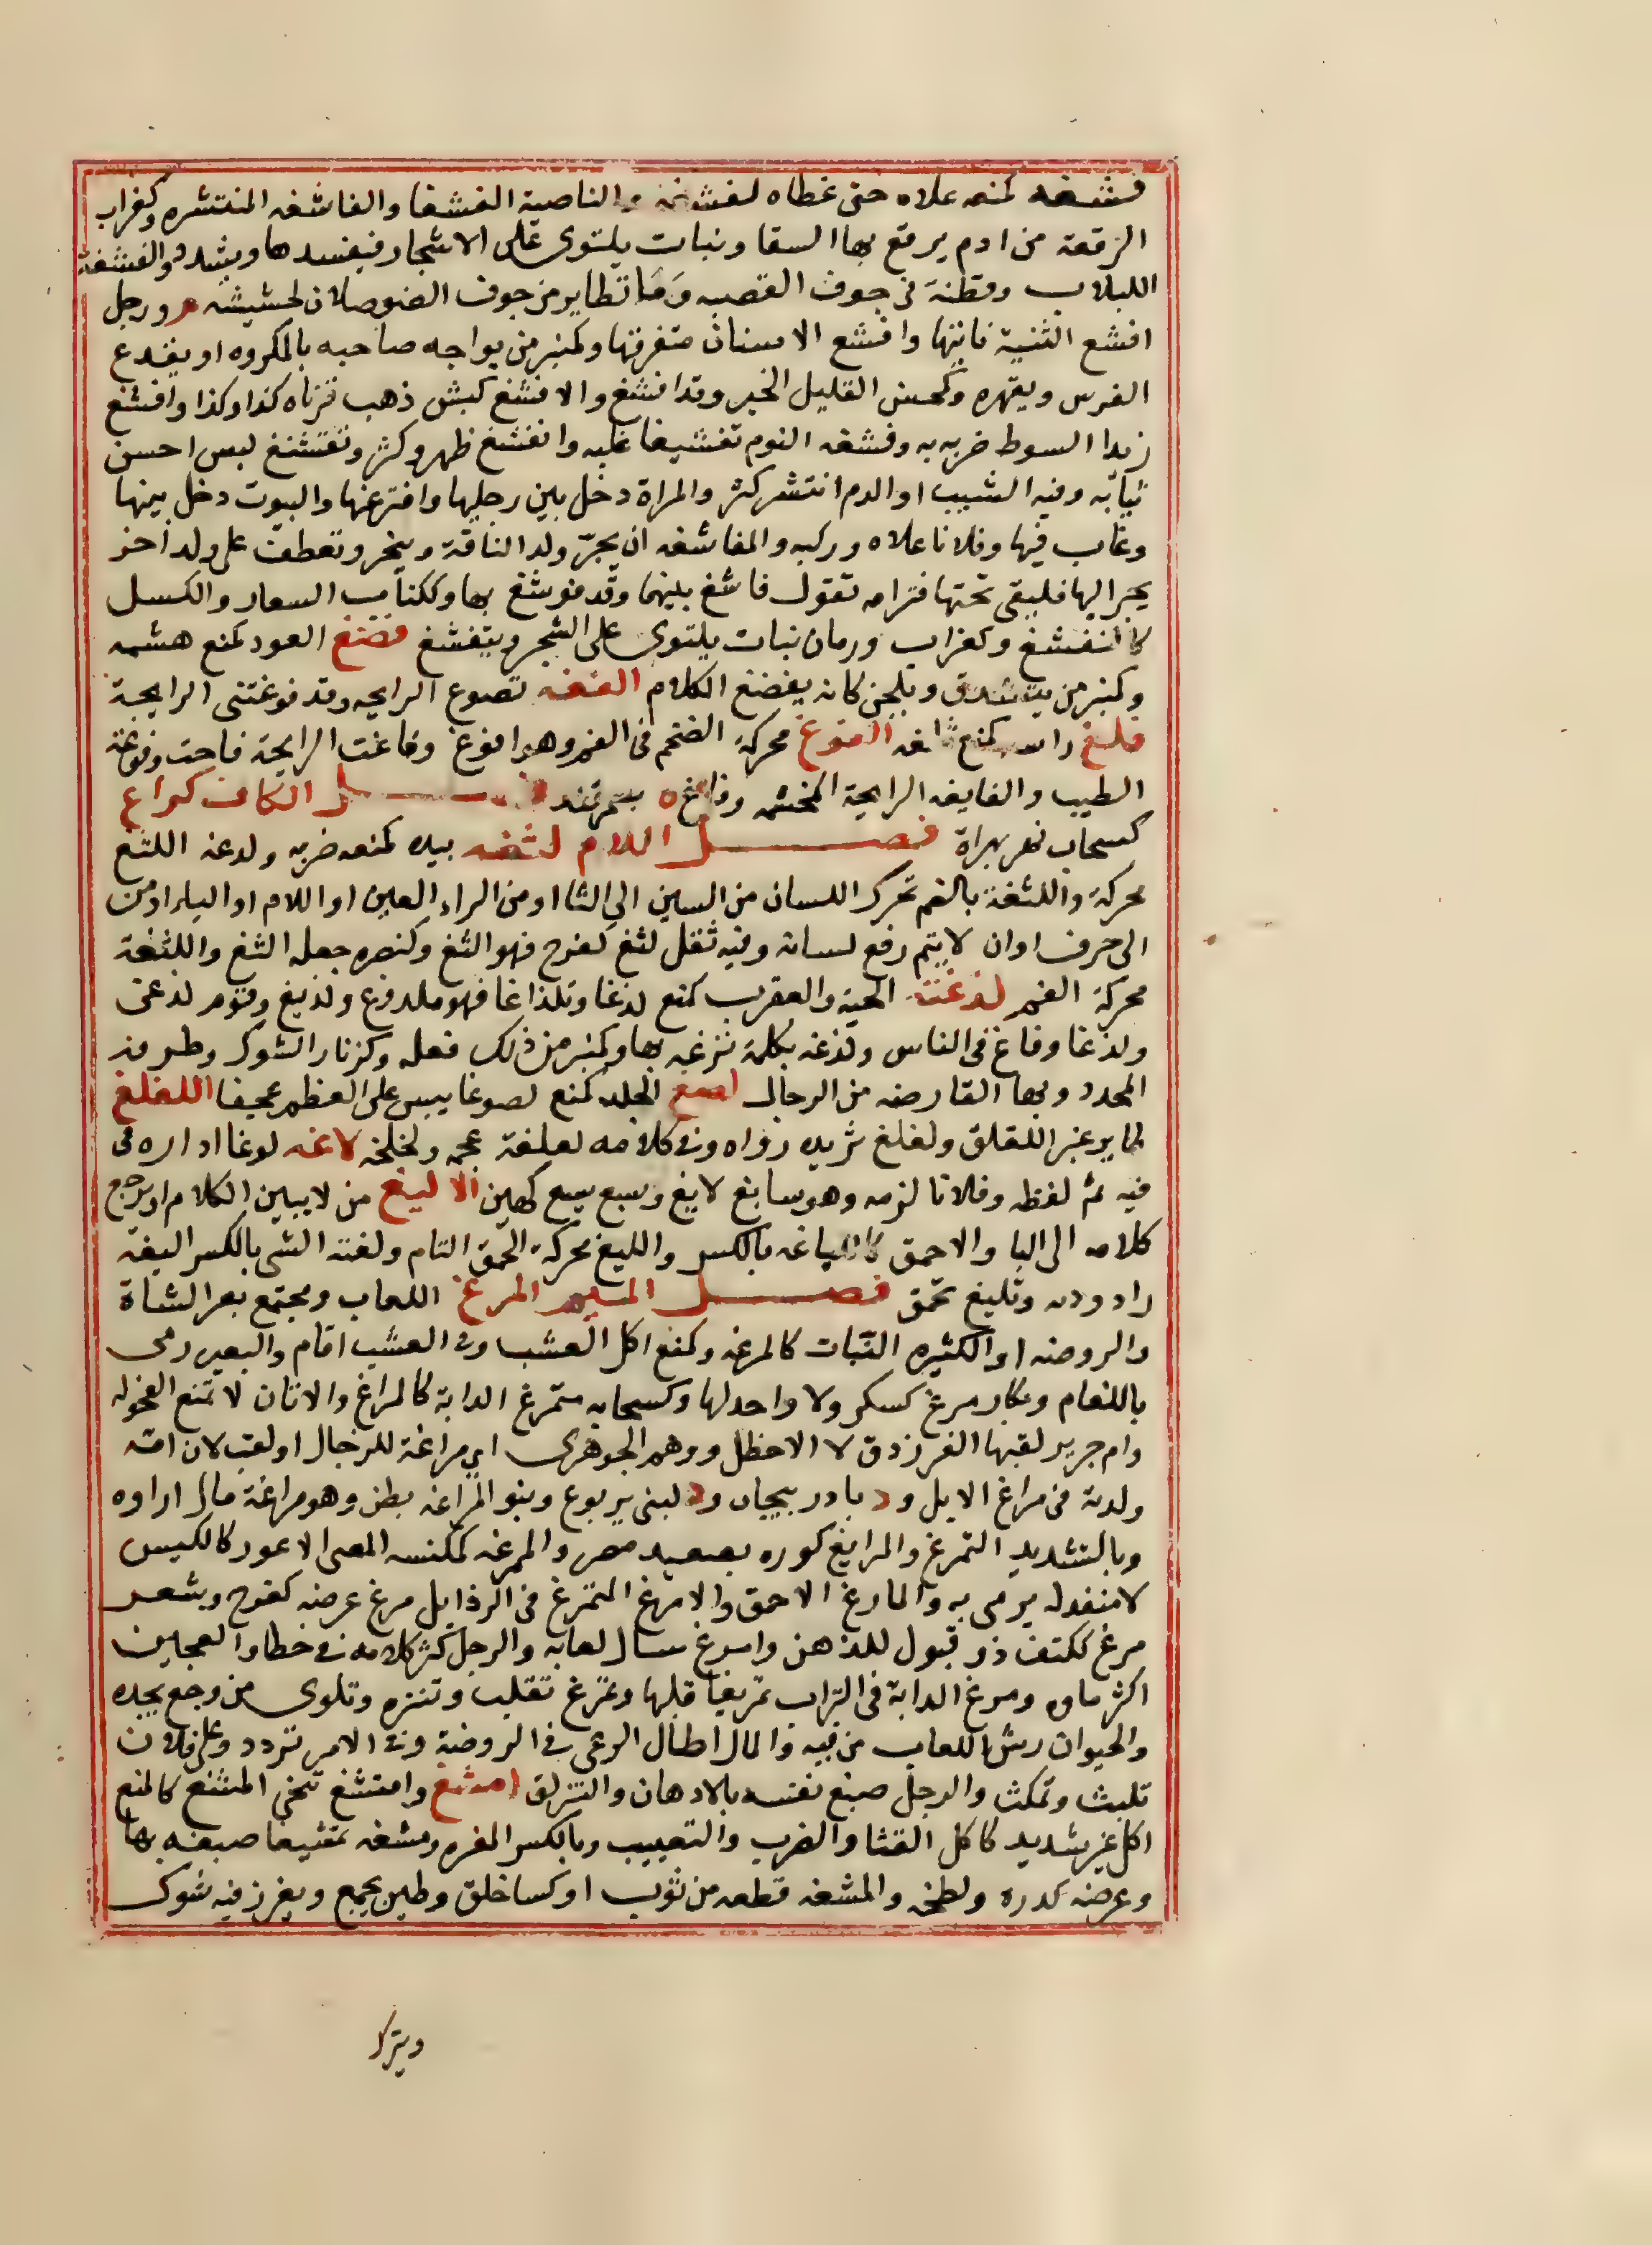 فشغه كمنعه علاه حتى غطاه كفشغه والناصية الفشغا والفاشغه المنتشره وكغراب
الرقعة من ادم يرقع بها السقا ونبات يلتوى على الاشجار فيفسدها ويشدد والفشغة
اللبلاب وقطنة فى جوف القصبه وما تطاير من جوف الصوصلان لحشيشه ورجل
افشغ الثنية ناتيها وافشغ الاسنان متفرقها وكمنبر من يواجه صاحبه بالمكروه او يقدع
الفرس ويقهره وكمحسن القليل الخير وقد افشغ والافشغ كبش ذهب قرناه كذا وكذا وافشغ
زيدا السوط ضربه به وفشغه النوم تفشيغا غلبه وانفشغ ظهر وكثر وتفشغ لبس احسن
ثيابه وفيه الشيب او الدم انتشر كثر والمراة دخل بين رجليها وافترعها والبيوت دخل بينها
وغاب فيها وفلانا علاه وركبه والمفاشغه ان يجر ولد الناقة وينحر وتعطف على ولد اخر
يجر اليها فليقى تحتها فترامه تقول فاشغ بينهما وقد فوشغ بها وككتاب السعار والكسل
كالتفشغ وكغراب ورمان نبات يلتوى على الشجر ويتفشغ فضغ العود كمنع هشمه
وكمنبر من يتشدق ويلحن كانه يفضغ الكلام الفغه تضوع الرايحه وقد فوغتنى الرايحة
فلغ راسه كمنع ثلغه الفوغ محركة الضخم فى الفم وهو افوغ وفاغت الرايحة فاحت وفوغة
الطيب والفايغه الرايحة المخشمه وفاغ ه بسمرقند فصل الكاف كراغ
كسحاب نهر بهراة فصل اللام لثغه بيده كمنعه ضربه ولدغه اللثغ
محركة واللثغة بالضم تحرك اللسان من السين الى الثا او من الراء العين او اللام او الياء او من
الى حرف او ان لا يتم رفع لسانه وفيه ثقل لثغ كفرح فهو الثغ وكنصره جعله الثغ واللثغة
محركة الفم لدغته الحية والعقرب كمنع لدغا وتلداغا فهو ملدوغ ولديغ وقوم لدغى
ولدغا وفاغ فى الناس ولدغه بكلمة نزغه بها وكمنبر من ذلك فعله وكزنار الشوك وطرفه
المحدد وبها القارصه من الرجال لصغ الجلد كمنع لصوغا يبس على العظم عجيفا اللغلغ
طاير غير اللقلق ولغلغ ثريده رواه وفى كلامه لغلغة عجمه ولخلخه لاغه لوغا اداره فى
فيه ثم لفظه وفلانا لزمه وهو سايغ لايغ وسيغ ليغ كهين الاليغ من لا يبين الكلام او يرجع
كلامه الى اليا والاحمق كاللياغه بالكسر والليغ محركة الحمق التام ولغته الشى بالكسر اليغه
راودته وتليغ تحمق فصل الميم المرغ اللعاب ومجتمع بعر الشاة
والروضه او الكثيره النبات كالمرغه وكمنع اكل العشب وفى العشب اقام والبعير رمى
باللغام وبكار مرغ كسكر ولا واحد لها وكسحابه متمرغ الدابة كالمراغ والاتان لا تمنع الفحوله
وام جرير لقبها الفرزدق لا الاخطل ووهم الجوهرى اى مراغة للرجال او لقب لان امه
ولدته فى مراغ الابل ود باذربيجان ود لبنى يربوع وبنو المراغه بطن وهو مراغة مال اراوه
وبالتشديد التمرغ والمرايغ كوره بصعيد مصر والممرغه كمكنسه المعى الاعور كالكيس
لا منفد له يرمى به والمارغ الاحمق والامرغ المتمرغ فى الرذايل مرغ عرضه كفرح وشعر
مرغ ككتف ذو قبول للدهن وامرغ سال لعابه والرجل كثر كلامه فى خطا والعجين
اكثر ماوه ومرغ الدابة فى التراب تمريغا قلبها وتمرغ تقلب وتنزه وتلوى من وجع يجده
والحيوان رش اللعاب من فيه والمال اطال الرعى فى الروضة وفى الامر تردد وعلى فلان
تلبث وتمكث والرجل صبغ نفسه بالادهان والتزلق امشغ وامتشغ تنخى المشغ كالمنع
اكل غير شديد كاكل القثا والضرب والتعييب وبالكسر المغره ومشغه تمشيغا صبغه بها
وعرضه كدره ولطخه والمشغه قطعه من ثوب او كسا خلق وطين يجمع ويغرز فيه شوك
ويترك